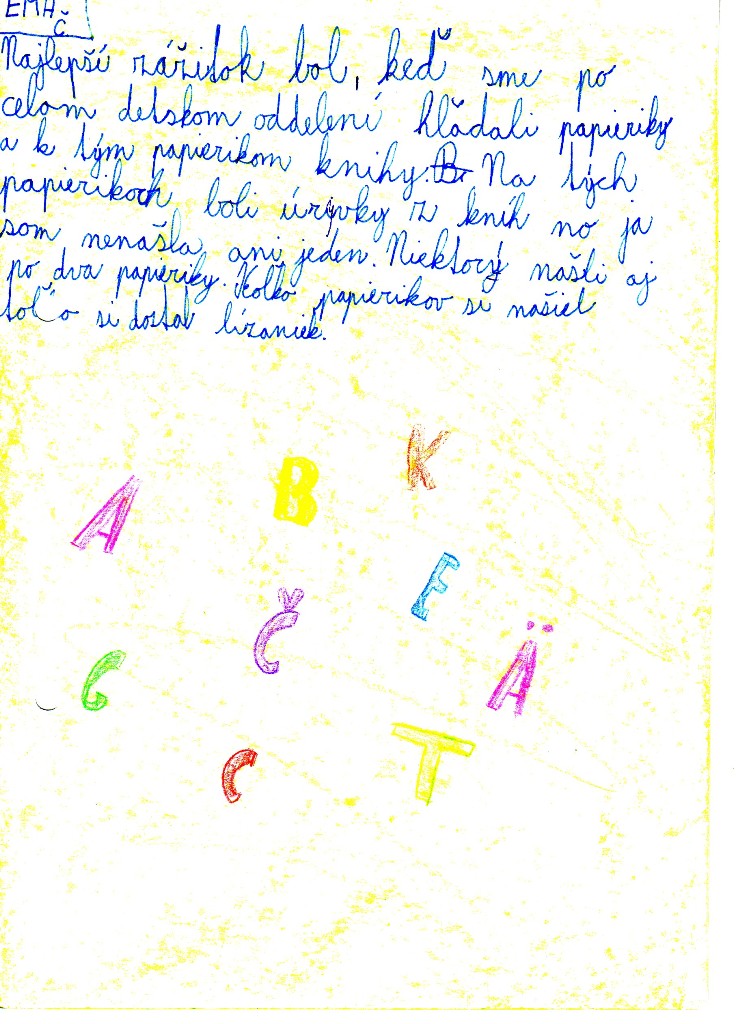 EMA
Č
Najlepší zážitok bol, keď sme po
celom detskom oddelení hľadali papieriky
a k tým papierikom knihy. B. Na tých
papierikoch boli úryvky z kníh no ja
som nenašla ani jeden. Niektorý našli aj
po dva papieriky. Koľko papierikov si našiel
toľo si dostal lízaniek.
K
A B
E
Č
Ä
G
T
C